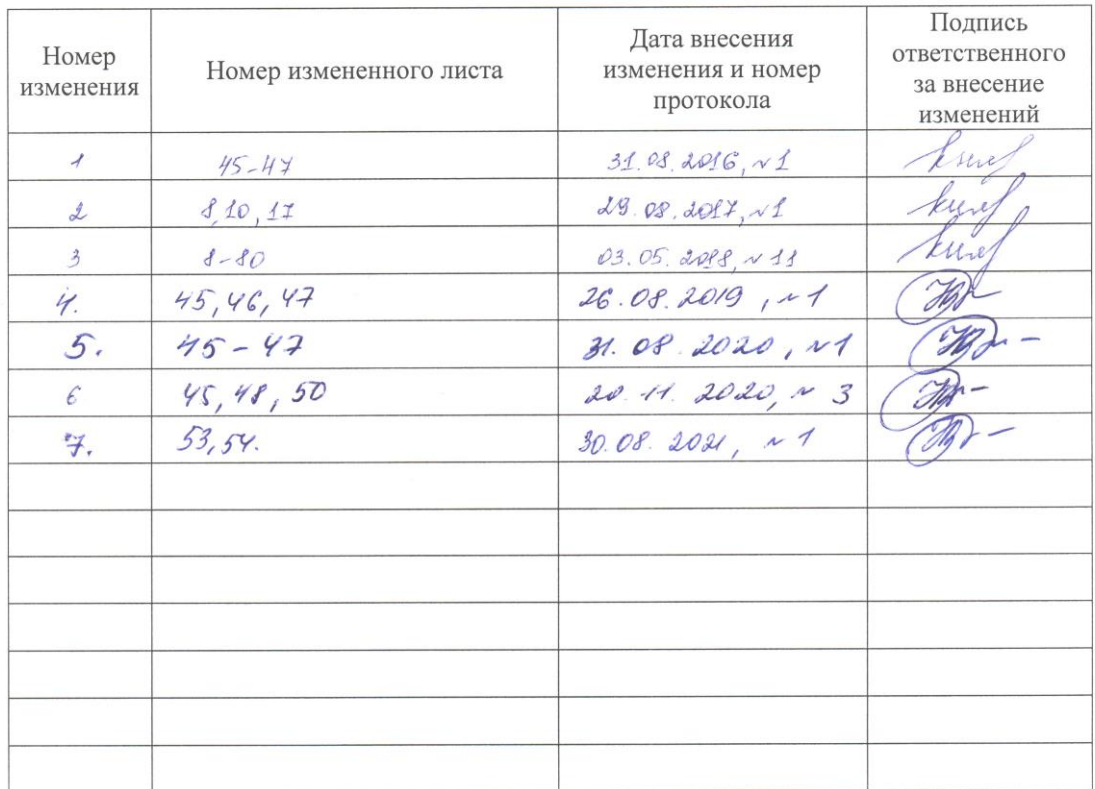 Номер изменения
Номер измененного листа
Дата внесения изменения и номер протокола
Подпись ответственного за внесение изменений
1 45-47 31.08.2016, №1
2 8,10,17 29.08.2017, №1
3 8-80 03.05.2018, №11
4. 45,46,47 26.08.2019, №1
5. 45-47 31.08.2020, №1
6 45,48,50 20.11.2020, №3
7. 53,54. 30.08.2021, №1